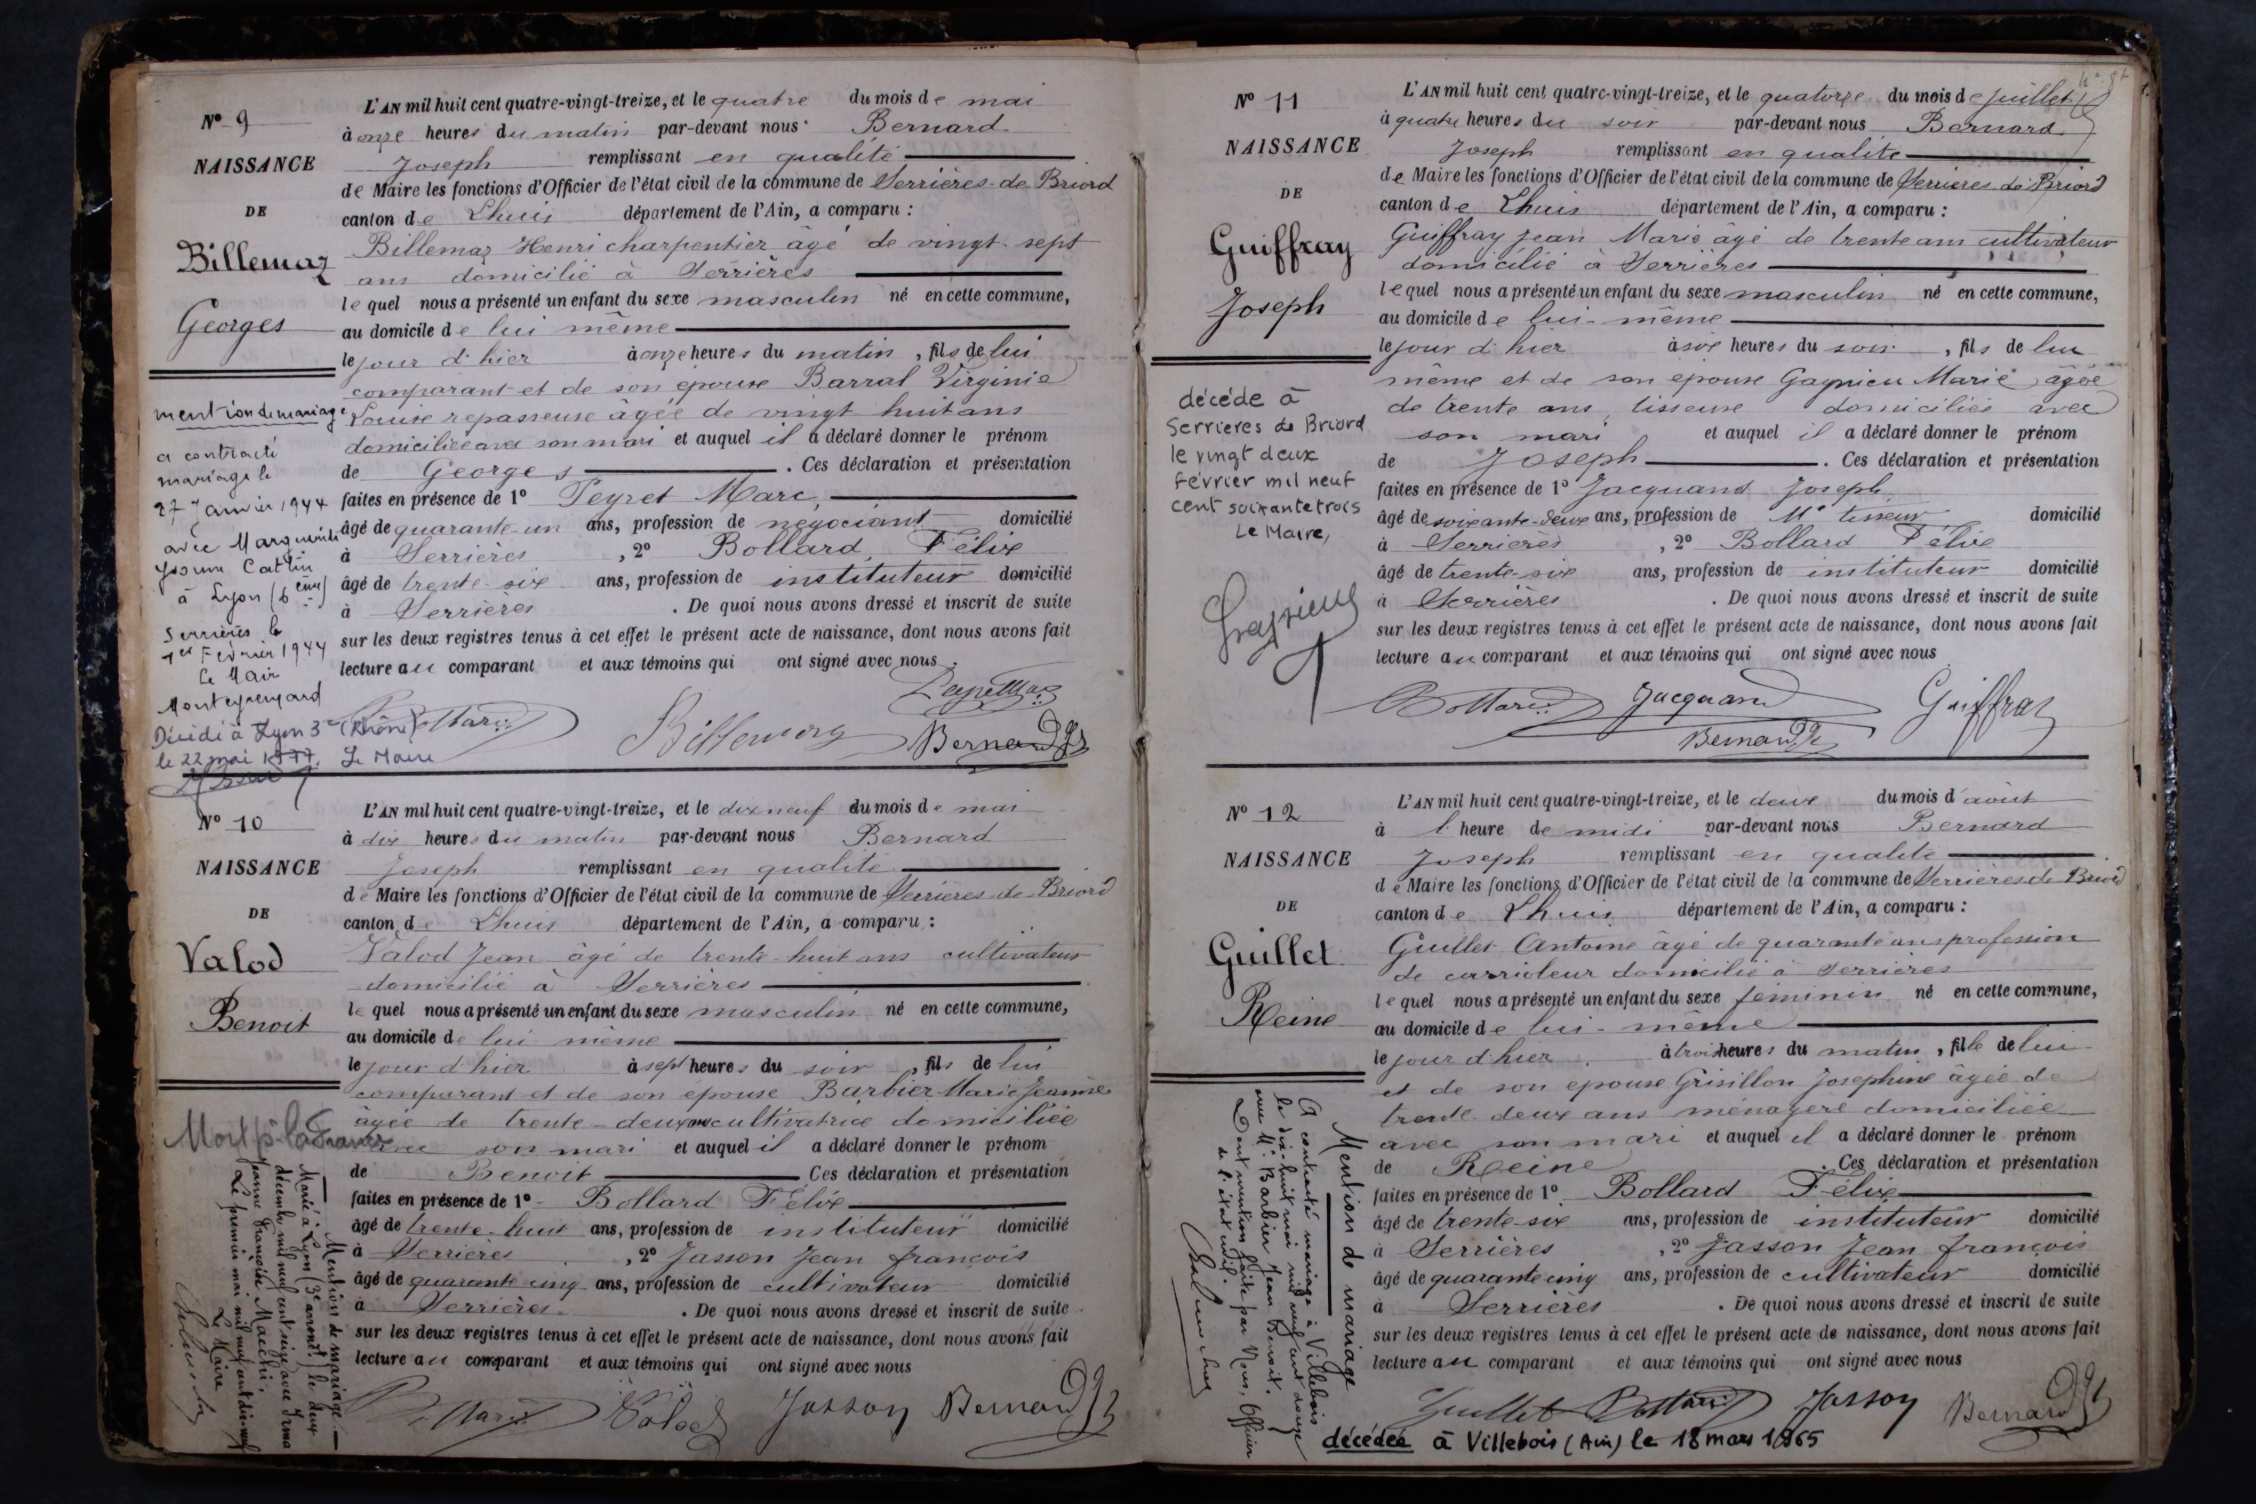 Nº 9
NAISSANCE
DE
Billemaz
Georges
mention de mariage
a contracté
mariage le
27 Janvier 1944
avec Marguerite
à Lyon (6ème)
Serrières le
1er Février 1944
Le Mair
Décédé à Lyon 3e (Rhône)
le 22 mai 1977. Le Maire
L'AN mil huit cent quatre-vingt-treize, et le quatre du mois de mai
à onze heures du matin par-devant nous Bernard
Joseph remplissant en qualité
de Maire les fonctions d'Officier de l'état civil de la commune de Serrières-de-Briord
canton de Lhuis département de l'Ain, a comparu :
Billemaz Henri charpentier âgé de vingt-sept
ans domicilié à Serrières
lequel nous a présenté un enfant du sexe masculin né en cette commune,
au domicile de lui même
le jour d'hier à onze heures du matin, fils de lui
comparant et de son épouse Barral Virginie
Louise repasseuse âgée de vingt huit ans
domiciliée avec son mari et auquel il a déclaré donner le prénom
de Georges. Ces déclaration et présentation
faites en présence de 1º Peyret Marc,
âgé de quarante-un ans, profession de négociant domicilié
à Serrières, 2º Bollard, Félix
âgé de trente-six ans, profession de instituteur domicilié
à Serrières. De quoi nous avons dressé et inscrit de suite
sur les deux registres tenus à cet effet le présent acte de naissance, dont nous avons fait
lecture au comparant et aux témoins qui ont signé avec nous.
Bollard Billemaz Bernard
Nº 10
NAISSANCE
DE
Valod
Benoit
Mort p. la France
Mention de mariage
Marié à Lyon (3e arrondt) le deux
décembre mil neuf cent seize avec Irma
Jeanne Françoise
Le premier mai mil neuf cent dix-neuf
Le Maire
L'AN mil huit cent quatre-vingt-treize, et le dix neuf du mois de mai
à dix heures du matin par-devant nous Bernard
Joseph remplissant en qualité
de Maire les fonctions d'Officier de l'état civil de la commune de Serrières-de-Briord
canton de Lhuis département de l'Ain, a comparu :
Valod Jean âgé de trente-huit ans cultivateur
domicilié à Serrières
lequel nous a présenté un enfant du sexe masculin né en cette commune,
au domicile de lui même
le jour d'hier à sept heures du soir, fils de lui
comparant et de son épouse Barbier Marie Jeanne
âgée de trente-deux ans cultivatrice domiciliée
avec son mari et auquel il a déclaré donner le prénom
de Benoit Ces déclaration et présentation
faites en présence de 1º Bollard Félix
âgé de trente-huit ans, profession de instituteur domicilié
à Serrières, 2º Jasson Jean françois
âgé de quarante cinq ans, profession de cultivateur domicilié
à Serrières. De quoi nous avons dressé et inscrit de suite
sur les deux registres tenus à cet effet le présent acte de naissance, dont nous avons fait
lecture au comparant et aux témoins qui ont signé avec nous
Bollard Valod Jasson Bernard
Nº 11
NAISSANCE
DE
Guiffray
Joseph
décédé à
Serrières de Briord
le vingt deux
Février mil neuf
cent soixante trois
Le Maire,
L'AN mil huit cent quatre-vingt-treize, et le quatorze du mois de juillet
à quatre heures du soir par-devant nous Bernard
Joseph remplissant en qualité
de Maire les fonctions d'Officier de l'état civil de la commune de Serrières de Briord
canton de Lhuis département de l'Ain, a comparu :
Guiffray Jean Marie âgé de trente ans cultivateur
domicilié à Serrières
lequel nous a présenté un enfant du sexe masculin né en cette commune,
au domicile de lui-même
le jour d'hier à six heures du soir, fils de lui
même et de son épouse Gagnieu Marie âgée
de trente ans, tisseuse domiciliée avec
son mari et auquel il a déclaré donner le prénom
de Joseph. Ces déclaration et présentation
faites en présence de 1º Jacquand Joseph
âgé de soixante-deux ans, profession de Me tisseur domicilié
à Serrières, 2º Bollard Félix
âgé de trente-six ans, profession de instituteur domicilié
à Serrières. De quoi nous avons dressé et inscrit de suite
sur les deux registres tenus à cet effet le présent acte de naissance, dont nous avons fait
lecture au comparant et aux témoins qui ont signé avec nous
Bollard Jacquand Guiffray
Bernard
Nº 12
NAISSANCE
DE
Guillet
Reine
Mention de mariage
A contracté mariage à Villebois
le dix-huit mai mil neuf cent douze
avec Mr Barbier Jean Benoit.
Dont mention faite par Nous, Officier
de l'état civil.
L'AN mil huit cent quatre-vingt-treize, et le deux du mois d'août
à l'heure de midi par-devant nous Bernard
Joseph remplissant en qualité
de Maire les fonctions d'Officier de l'état civil de la commune de Serrières de Briord
canton de Lhuis département de l'Ain, a comparu :
Guillet Antoine âgé de quarante ans profession
de carrioleur domicilié à Serrières
lequel nous a présenté un enfant du sexe féminin né en cette commune,
au domicile de lui-même
le jour d'hier à trois heures du matin, fille de lui
et de son épouse Grisillon Josephine âgée de
trente deux ans ménagère domiciliée
avec son mari et auquel il a déclaré donner le prénom
de Reine. Ces déclaration et présentation
faites en présence de 1º Bollard Félix
âgé de trente-six ans, profession de instituteur domicilié
à Serrières, 2º Jasson Jean françois
âgé de quarante cinq ans, profession de cultivateur domicilié
à Serrières. De quoi nous avons dressé et inscrit de suite
sur les deux registres tenus à cet effet le présent acte de naissance, dont nous avons fait
lecture au comparant et aux témoins qui ont signé avec nous
Guillet Bollard Jasson Bernard
décédée à Villebois (Ain) le 18 mars 1965